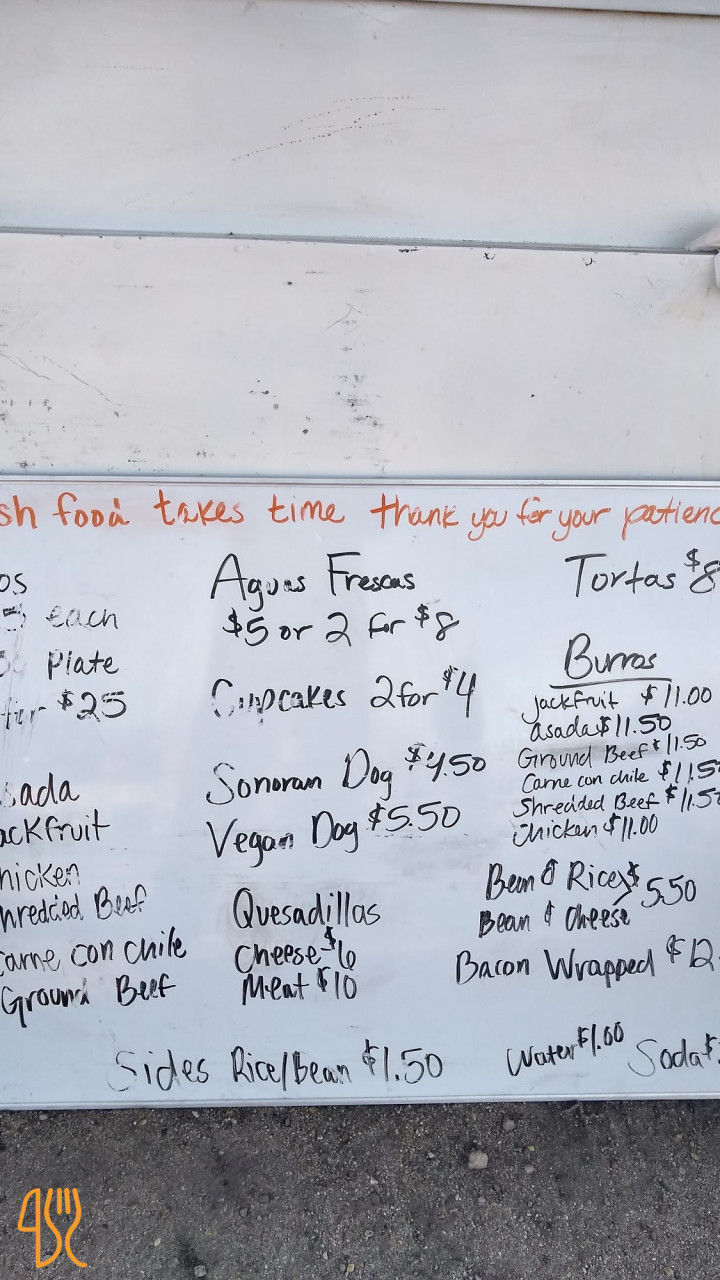 sh food takes time thank you for your patienc
os
each
Plate
for $25
sada
ackfruit
hicken
hredded Beef
Carne con chile
Ground Beef
Aguas Frescas
$5 or 2 for $8
Cupcakes 2 for $4
Sonoran Dog $4.50
Vegan Dog $5.50
Quesadillas
Cheese $6
Meat $10
Tortas $8
Burros
Jackfruit $11.00
asada $11.50
Ground Beef $11.50
Carne con chile $11.5
Shredded Beef $11.5
Chicken $11.00
Bean & Rice $5.50
Bean & Cheese
Bacon Wrapped $12
Sides Rice/Bean $1.50
Water $1.00
Soda $